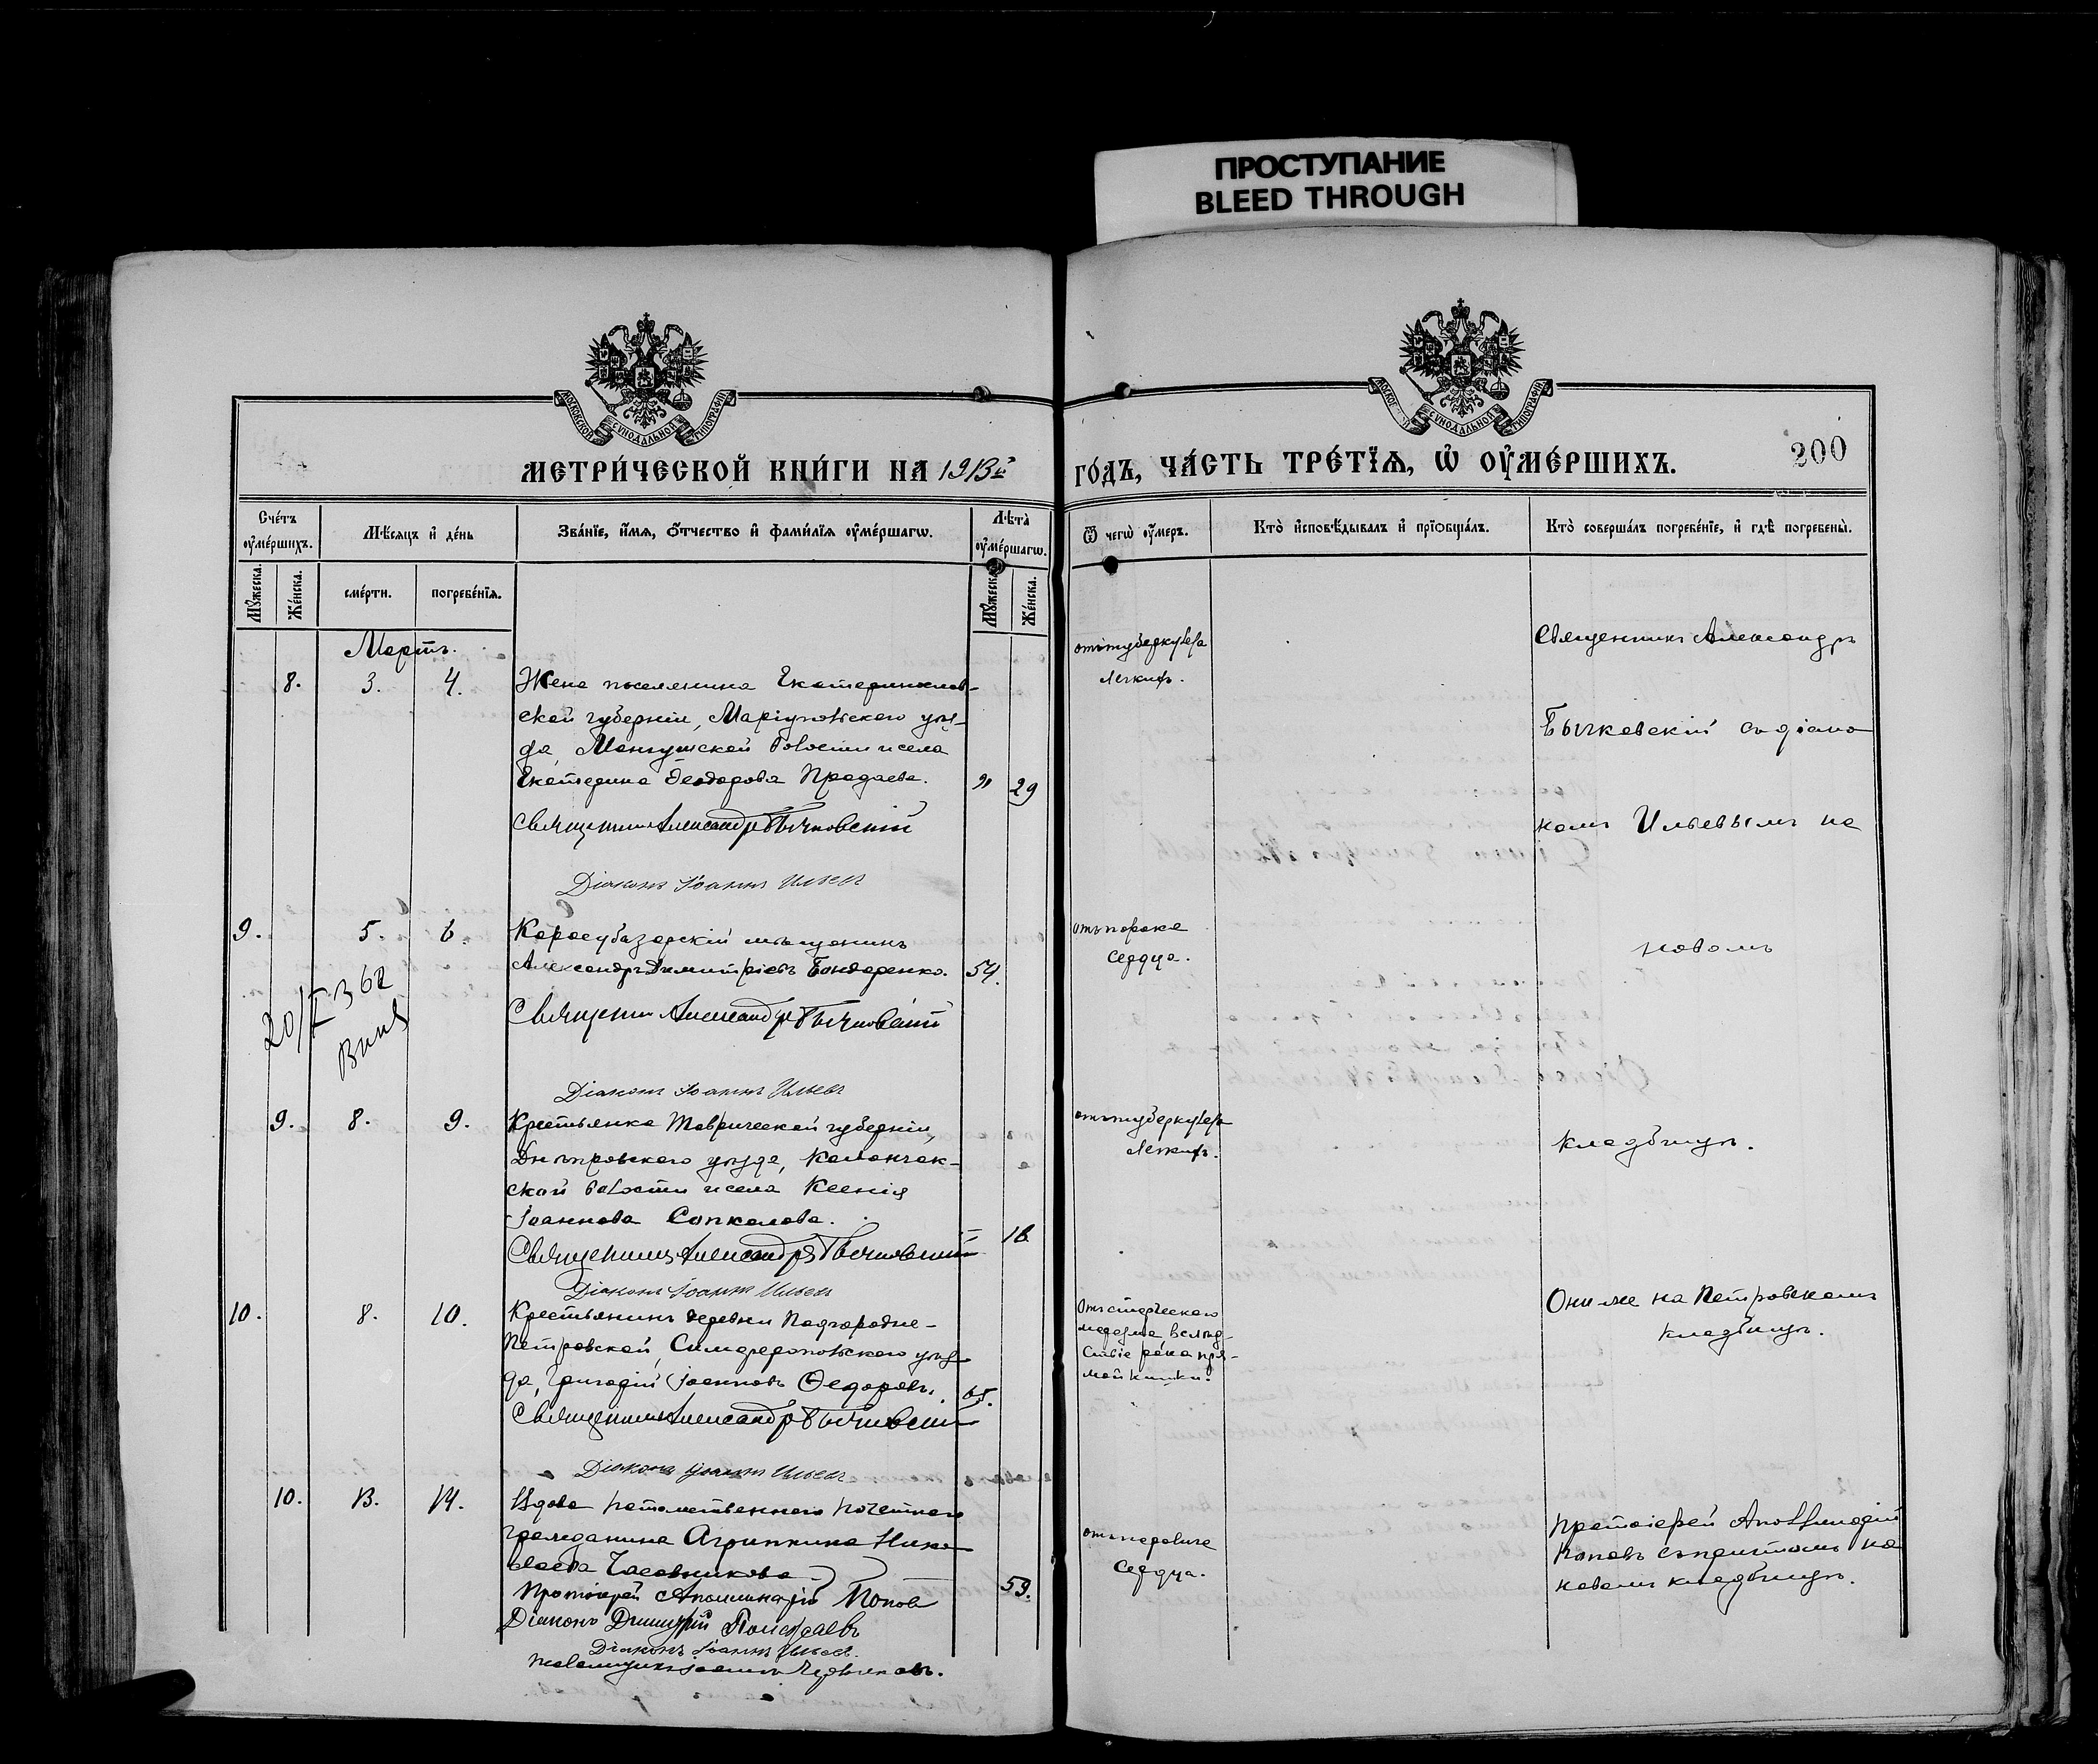 ПРОСТУПАНИЕ
BLEED THROUGH
МОСКОВСКОЙ СѴНОДАЛЬНОЙ ТИПОГРАФІИ
МЕТРИ́ЧЕСКОЙ КНИ́ГИ НА 1913й
ГО́ДЪ, ЧА́СТЬ ТРЕ́ТЇѦ, Ѡ҆ ОУ҆МЕ́РШИХЪ.
200
Сче́тъ оу҆ме́ршихъ.
Мѣ́сяцъ и҆ де́нь
Зва́нїе, и҆́мѧ, ѻ҆́тчество и҆ фами́лїѧ оу҆ме́ршагѡ.
Лѣ́та оу҆ме́ршагѡ.
Ѿ чегѡ̀ оу҆́меръ.
Кто̀ и҆сповѣ́дывалъ и҆ прїѻбща́лъ.
Кто̀ соверша́лъ погребе́нїе, и҆ гдѣ̀ погребены̀.
Мꙋ́жеска.
Же́нска.
сме́рти.
погребе́нїѧ.
Мꙋ́жеска.
Же́нска.
Мартъ.
8.
3.
4.
Жена поселянина Екатеринослав-
ской губерніи, Маріупольскаго уѣз-
да, Мангушской волости и села
Екатерина Ѳеодорова Прадаева.
"
29
Священникъ Александръ Бычковскій
Діаконъ Іоаннъ Ильевъ
отъ туберкулеза
легкихъ.
Священникъ Александръ
Бычковскій съ діако-
номъ Ильевымъ на
новомъ
кладбищѣ.
9.
5.
6.
Карасубазарскій мѣщанинъ
Александръ Димитріевъ Бондаренко.
54.
Священникъ Александръ Бычковскій
20/I 36г
Діаконъ Іоаннъ Ильевъ
отъ порока
сердца.
9.
8.
9.
Крестьянка Таврической губерніи,
Днѣпровскаго уѣзда, Каланчак-
ской волости и села Ксенія
Іоаннова Сопкалова.
16.
Священникъ Александръ Бычковскій
Діаконъ Іоаннъ Ильевъ
отъ туберкулеза
легкихъ.
10.
8.
10.
Крестьянинъ деревни Подгородне-
Петровской, Симферопольскаго уѣз-
да, Григорій Іоанновъ Ѳедоровъ.
65.
Священникъ Александръ Бычковскій
Діаконъ Іоаннъ Ильевъ
Отъ старческаго
маразма, вслѣд-
ствіе рака пря-
мой кишки.
Они же на Петровскомъ
кладбищѣ.
10.
13.
14.
Вдова потомственнаго почетнаго
гражданина Агриппина Нико-
лаева Часовникова
59.
Протоіерей Аполлинарій Поповъ
Діаконъ Димитрій
Діаконъ Іоаннъ Ильевъ.
Псаломщикъ Іоаннъ
отъ паралича
сердца.
Протоіерей Аполлинарій
Поповъ съ причтомъ на
новомъ кладбищѣ.